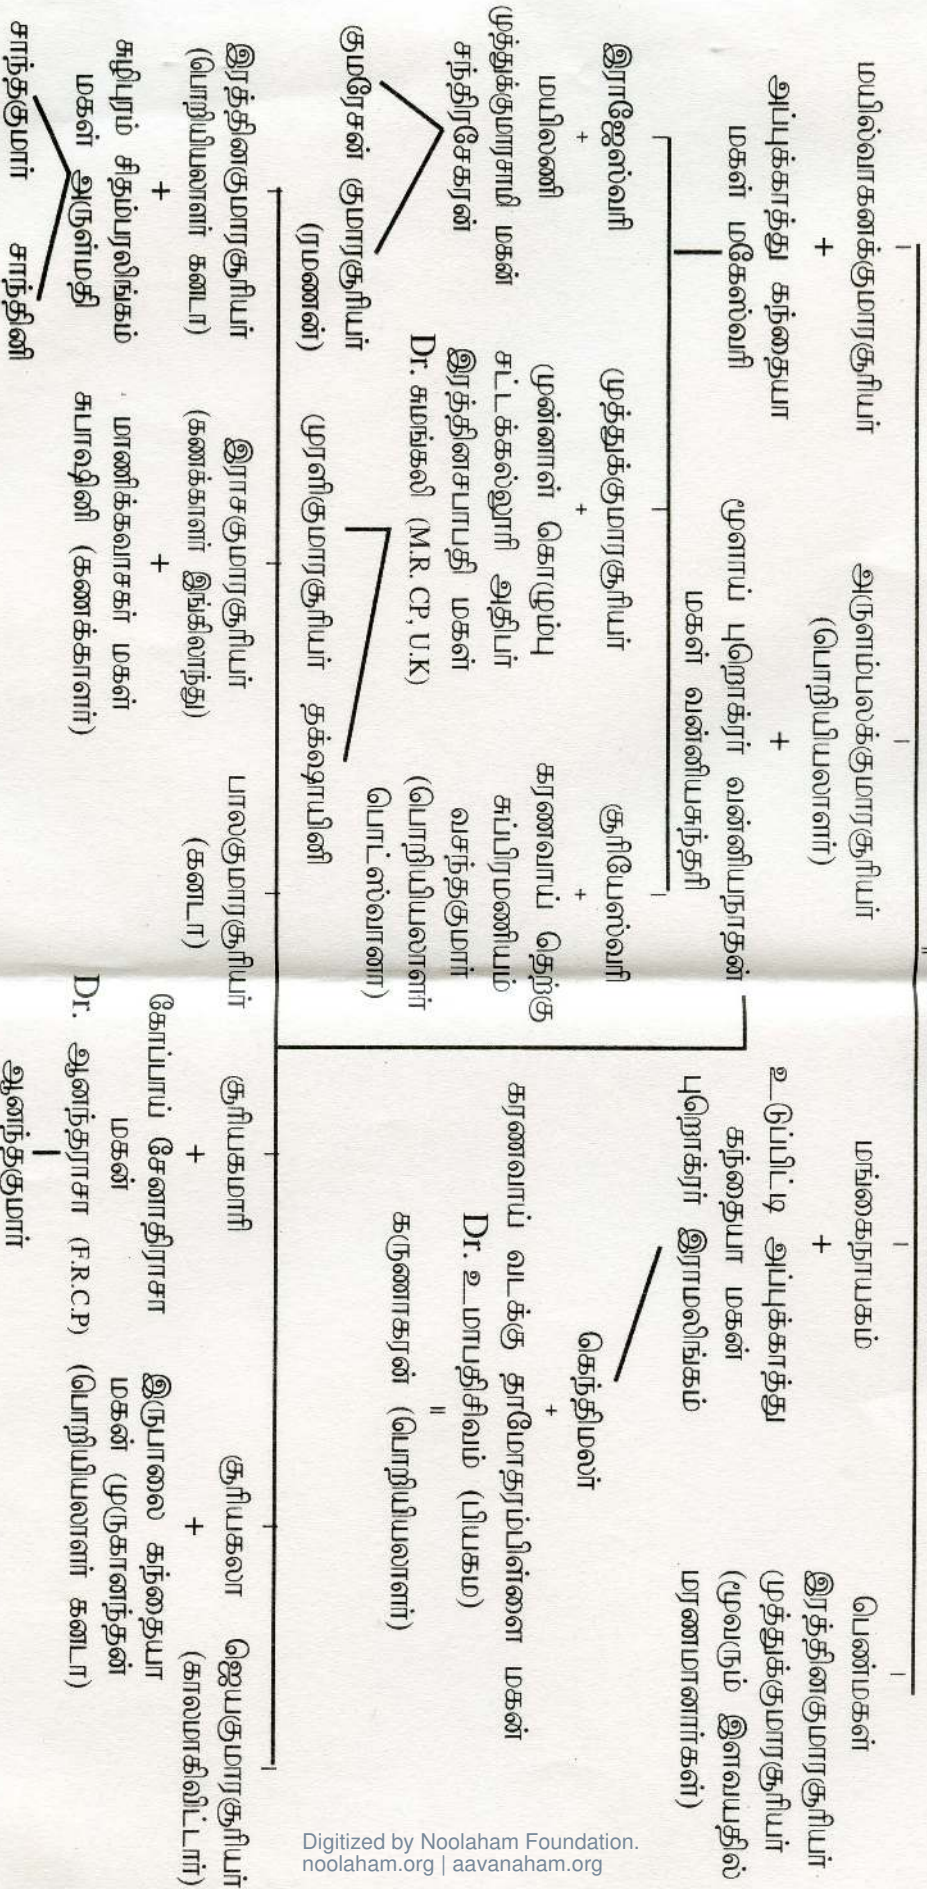 மயில்வாகனக்குமாரசூரியர்
+
அப்புக்காத்து கந்தையா
மகள் மகேஸ்வரி
அருளம்பலக்குமாரசூரியர்
(பொறியியலாளர்)
+
மூளாய் புறொக்ரர் வன்னியநாதன்
மகள் வன்னியசுந்தரி
மங்கைநாயகம்
+
உடுப்பிட்டி அப்புக்காத்து
கந்தையா மகன்
புறொக்ரர் இராமலிங்கம்
பெண்மகள்
இரத்தினகுமாரசூரியர்
முத்துக்குமாரசூரியர்
(மூவரும் இளவயதில்
மரணமானார்கள்)
இராஜேஸ்வரி
+
மயிலணி
முத்துக்குமாரசாமி மகன்
சந்திரசேகரன்
குமரேசன் குமாரசூரியர்
(ரமணன்)
முத்துக்குமாரசூரியர்
+
முன்னாள் கொழும்பு
சட்டக்கல்லூரி அதிபர்
இரத்தினசபாபதி மகள்
Dr. சுமங்கலி (M.R. CP, U.K)
முரளிகுமாரசூரியர் தக்‌ஷாயினி
சூரியேஸ்வரி
+
கரணவாய் தெற்கு
சுப்பிரமணியம்
வசந்தகுமார்
(பொறியியலாளர்
பொட்ஸ்வானா)
கெந்திமலர்
+
கரணவாய் வடக்கு தாமோதரம்பிள்ளை மகன்
Dr. உமாபதிசிவம் (பியகம)
=
கருணாகரன் (பொறியியலாளர்)
இரத்தினகுமாரசூரியர்
(பொறியியலாளர் கனடா)
+
சுழிபுரம் சிதம்பரலிங்கம்
மகள் அருள்மதி
சாந்தகுமார் சாந்தினி
இராசகுமாரசூரியர்
(கணக்காளர் இங்கிலாந்து)
+
மாணிக்கவாசகர் மகள்
சுபாஷினி (கணக்காளர்)
பாலகுமாரசூரியர்
(கனடா)
சூரியகுமாரி
+
கோப்பாய் சேனாதிராசா
மகன்
Dr. ஆனந்தராசா (F.R.C.P)
ஆனந்தகுமார்
சூரியகலா
+
இருபாலை கந்தையா
மகன் முருகானந்தன்
(பொறியியலாளர் கனடா)
ஜெயகுமாரசூரியர்
(காலமாகிவிட்டார்)
Digitized by Noolaham Foundation.
noolaham.org | aavanaham.org